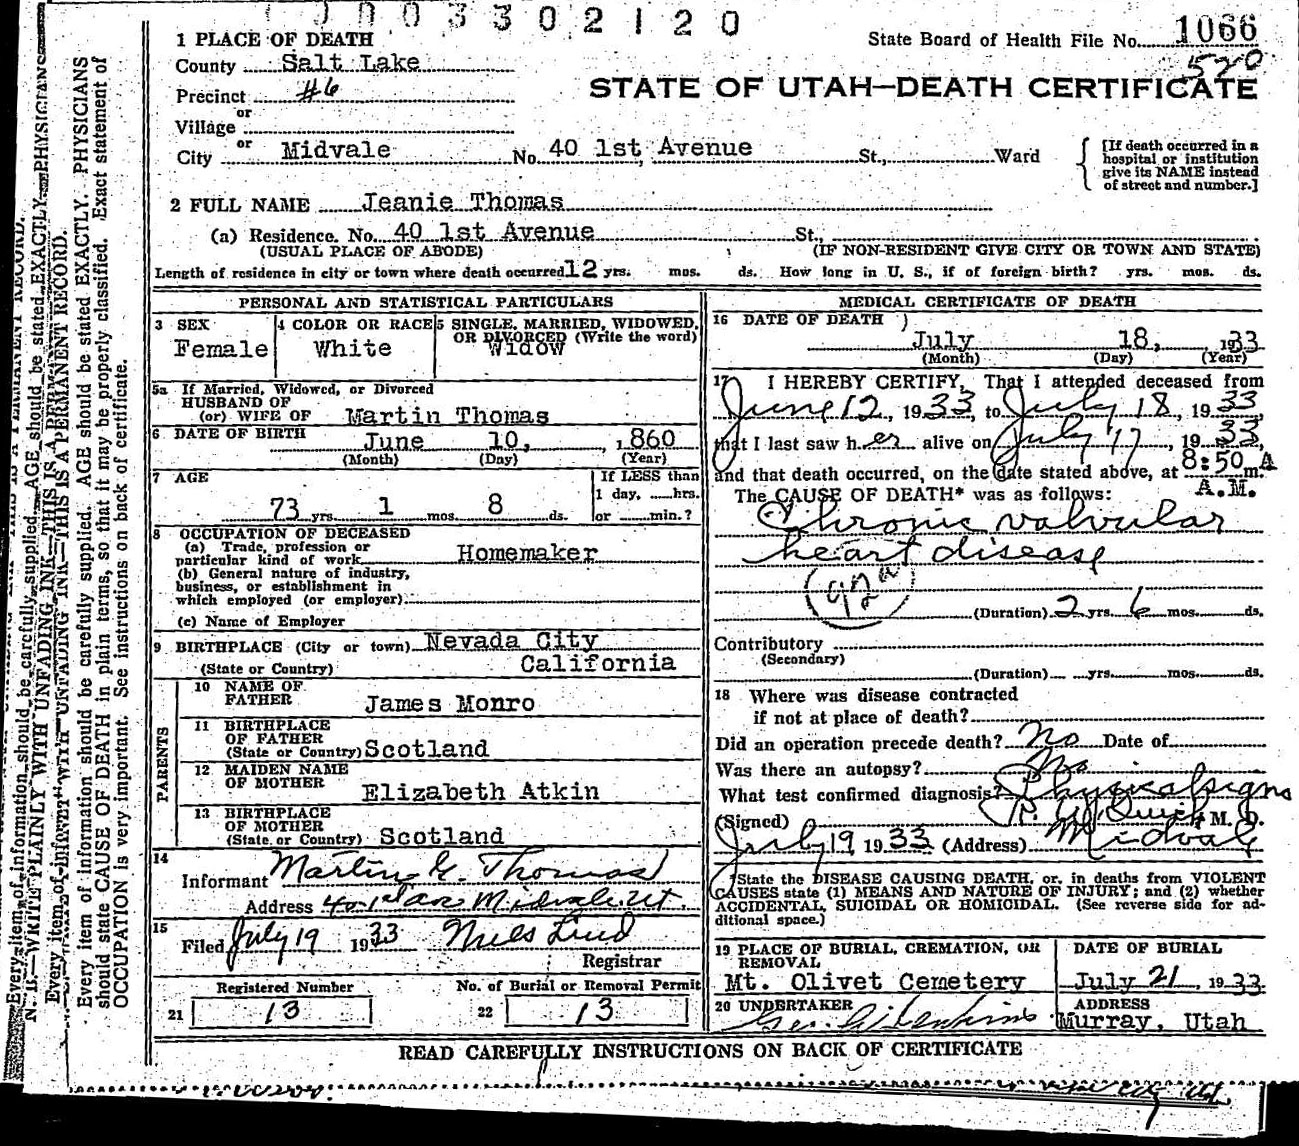 0003302120
State Board of Health File No. 1066
520
1 PLACE OF DEATH
County Salt Lake
STATE OF UTAH—DEATH CERTIFICATE
Precinct #6
or
Village
or
City Midvale No. 40 1st Avenue St., Ward
[If death occurred in a hospital or institution give its NAME instead of street and number.]
2 FULL NAME Jeanie Thomas
(a) Residence. No. 40 1st Avenue St.,
(USUAL PLACE OF ABODE) (IF NON-RESIDENT GIVE CITY OR TOWN AND STATE)
Length of residence in city or town where death occurred 12 yrs. mos. ds. How long in U. S., if of foreign birth? yrs. mos. ds.
PERSONAL AND STATISTICAL PARTICULARS
3 SEX
Female
4 COLOR OR RACE
White
5 SINGLE, MARRIED, WIDOWED, OR DIVORCED (Write the word)
Widow
5a If Married, Widowed, or Divorced
HUSBAND OF
(or) WIFE OF Martin Thomas
6 DATE OF BIRTH June 10, 1860
(Month) (Day) (Year)
7 AGE
73 yrs. 1 mos. 8 ds.
If LESS than
1 day, hrs.
or min.?
8 OCCUPATION OF DECEASED
(a) Trade, profession or
particular kind of work Homemaker
(b) General nature of industry,
business, or establishment in
which employed (or employer)
(c) Name of Employer
9 BIRTHPLACE (City or town) Nevada City
(State or Country) California
PARENTS
10 NAME OF
FATHER James Monro
11 BIRTHPLACE
OF FATHER
(State or Country) Scotland
12 MAIDEN NAME
OF MOTHER Elizabeth Atkin
13 BIRTHPLACE
OF MOTHER
(State or Country) Scotland
14
Informant Martin G. Thomas
Address 40 1st Ave Midvale Ut.
15
Filed July 19 1933 Niels Lind
Registrar
Registered Number No. of Burial or Removal Permit
21 13 22 13
MEDICAL CERTIFICATE OF DEATH
16 DATE OF DEATH
July 18, 1933
(Month) (Day) (Year)
17 I HEREBY CERTIFY, That I attended deceased from
June 12, 1933, to July 18, 1933,
that I last saw her alive on July 17, 1933,
and that death occurred, on the date stated above, at 8:50 A m.
A.M.
The CAUSE OF DEATH* was as follows:
Chronic valvular
heart disease
92a
(Duration) 2 yrs. 6 mos. ds.
Contributory
(Secondary)
(Duration) yrs. mos. ds.
18 Where was disease contracted
if not at place of death?
Did an operation precede death? No Date of
Was there an autopsy? No
What test confirmed diagnosis? Physical signs
(Signed) M. D.
July 19 1933 (Address) Midvale
*State the DISEASE CAUSING DEATH, or, in deaths from VIOLENT
CAUSES state (1) MEANS AND NATURE OF INJURY; and (2) whether
ACCIDENTAL, SUICIDAL OR HOMICIDAL. (See reverse side for ad-
ditional space.)
19 PLACE OF BURIAL, CREMATION, OR
REMOVAL
Mt. Olivet Cemetery
DATE OF BURIAL
July 21, 1933
20 UNDERTAKER
Geo. W. Jenkins
ADDRESS
Murray, Utah
READ CAREFULLY INSTRUCTIONS ON BACK OF CERTIFICATE
N. B.—WRITE PLAINLY WITH UNFADING INK—THIS IS A PERMANENT RECORD.
Every item of information should be carefully supplied. AGE should be stated EXACTLY. PHYSICIANS
should state CAUSE OF DEATH in plain terms, so that it may be properly classified. Exact statement of
OCCUPATION is very important. See instructions on back of certificate.